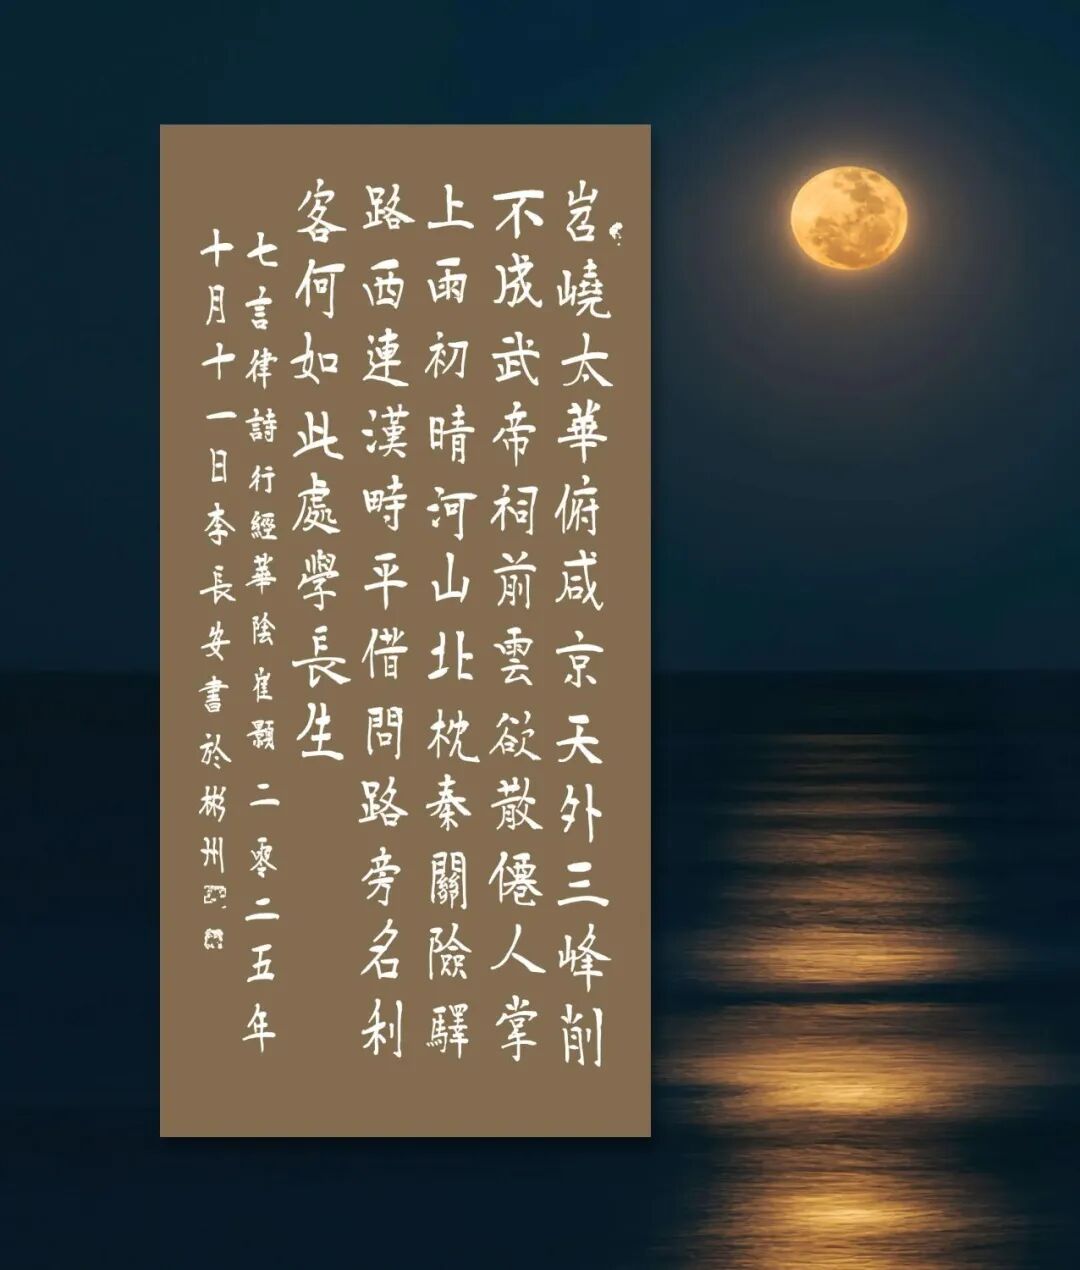 岧嶢太華俯咸京天外三峰削
不成武帝祠前雲欲散僊人掌
上雨初晴河山北枕秦關險驛
路西連漢畤平借問路旁名利
客何如此處學長生
七言律詩行經華陰崔顥二零二五年
十月十一日李長安書於彬州